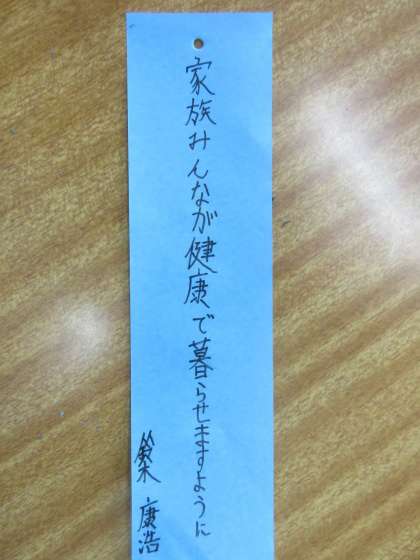 家族みんなが健康で暮らせますように
康浩